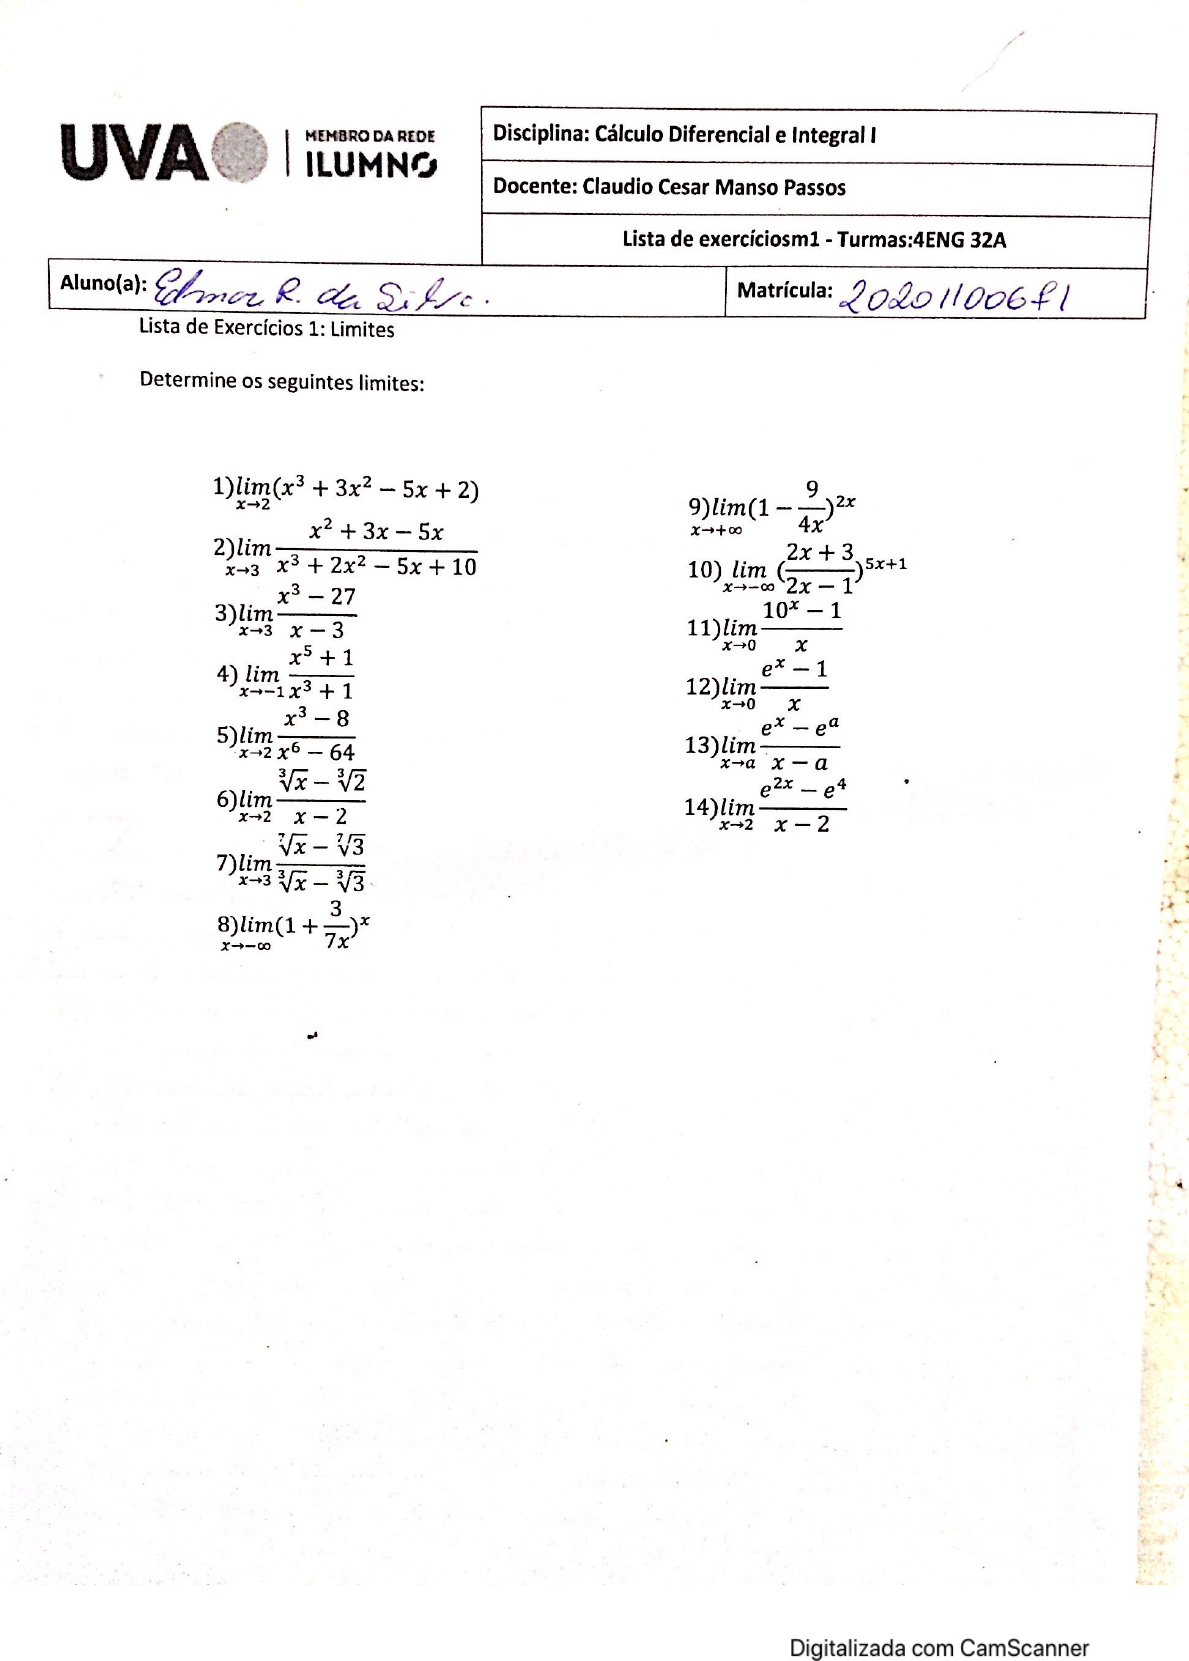 UVA MEMBRO DA REDE
ILUMNO
Disciplina: Cálculo Diferencial e Integral I
Docente: Claudio Cesar Manso Passos
Lista de exercíciosm1 - Turmas:4ENG 32A
Aluno(a): Edmar R. da Silva.
Matrícula:
Lista de Exercícios 1: Limites
Determine os seguintes limites:
1) lim x→2 (x³ + 3x² − 5x + 2)
2) lim x→3 (x² + 3x − 5x)/(x³ + 2x² − 5x + 10)
3) lim x→3 (x³ − 27)/(x − 3)
4) lim x→−1 (x⁵ + 1)/(x³ + 1)
5) lim x→2 (x³ − 8)/(x⁶ − 64)
6) lim x→2 (∛x − ∛2)/(x − 2)
7) lim x→3 (⁷√x − ⁷√3)/(∛x − ∛3)
8) lim x→−∞ (1 + 3/7x)^x
9) lim x→+∞ (1 − 9/4x)^2x
10) lim x→−∞ ((2x + 3)/(2x − 1))^5x+1
11) lim x→0 (10^x − 1)/x
12) lim x→0 (e^x − 1)/x
13) lim x→a (e^x − e^a)/(x − a)
14) lim x→2 (e^2x − e⁴)/(x − 2)
Digitalizada com CamScanner